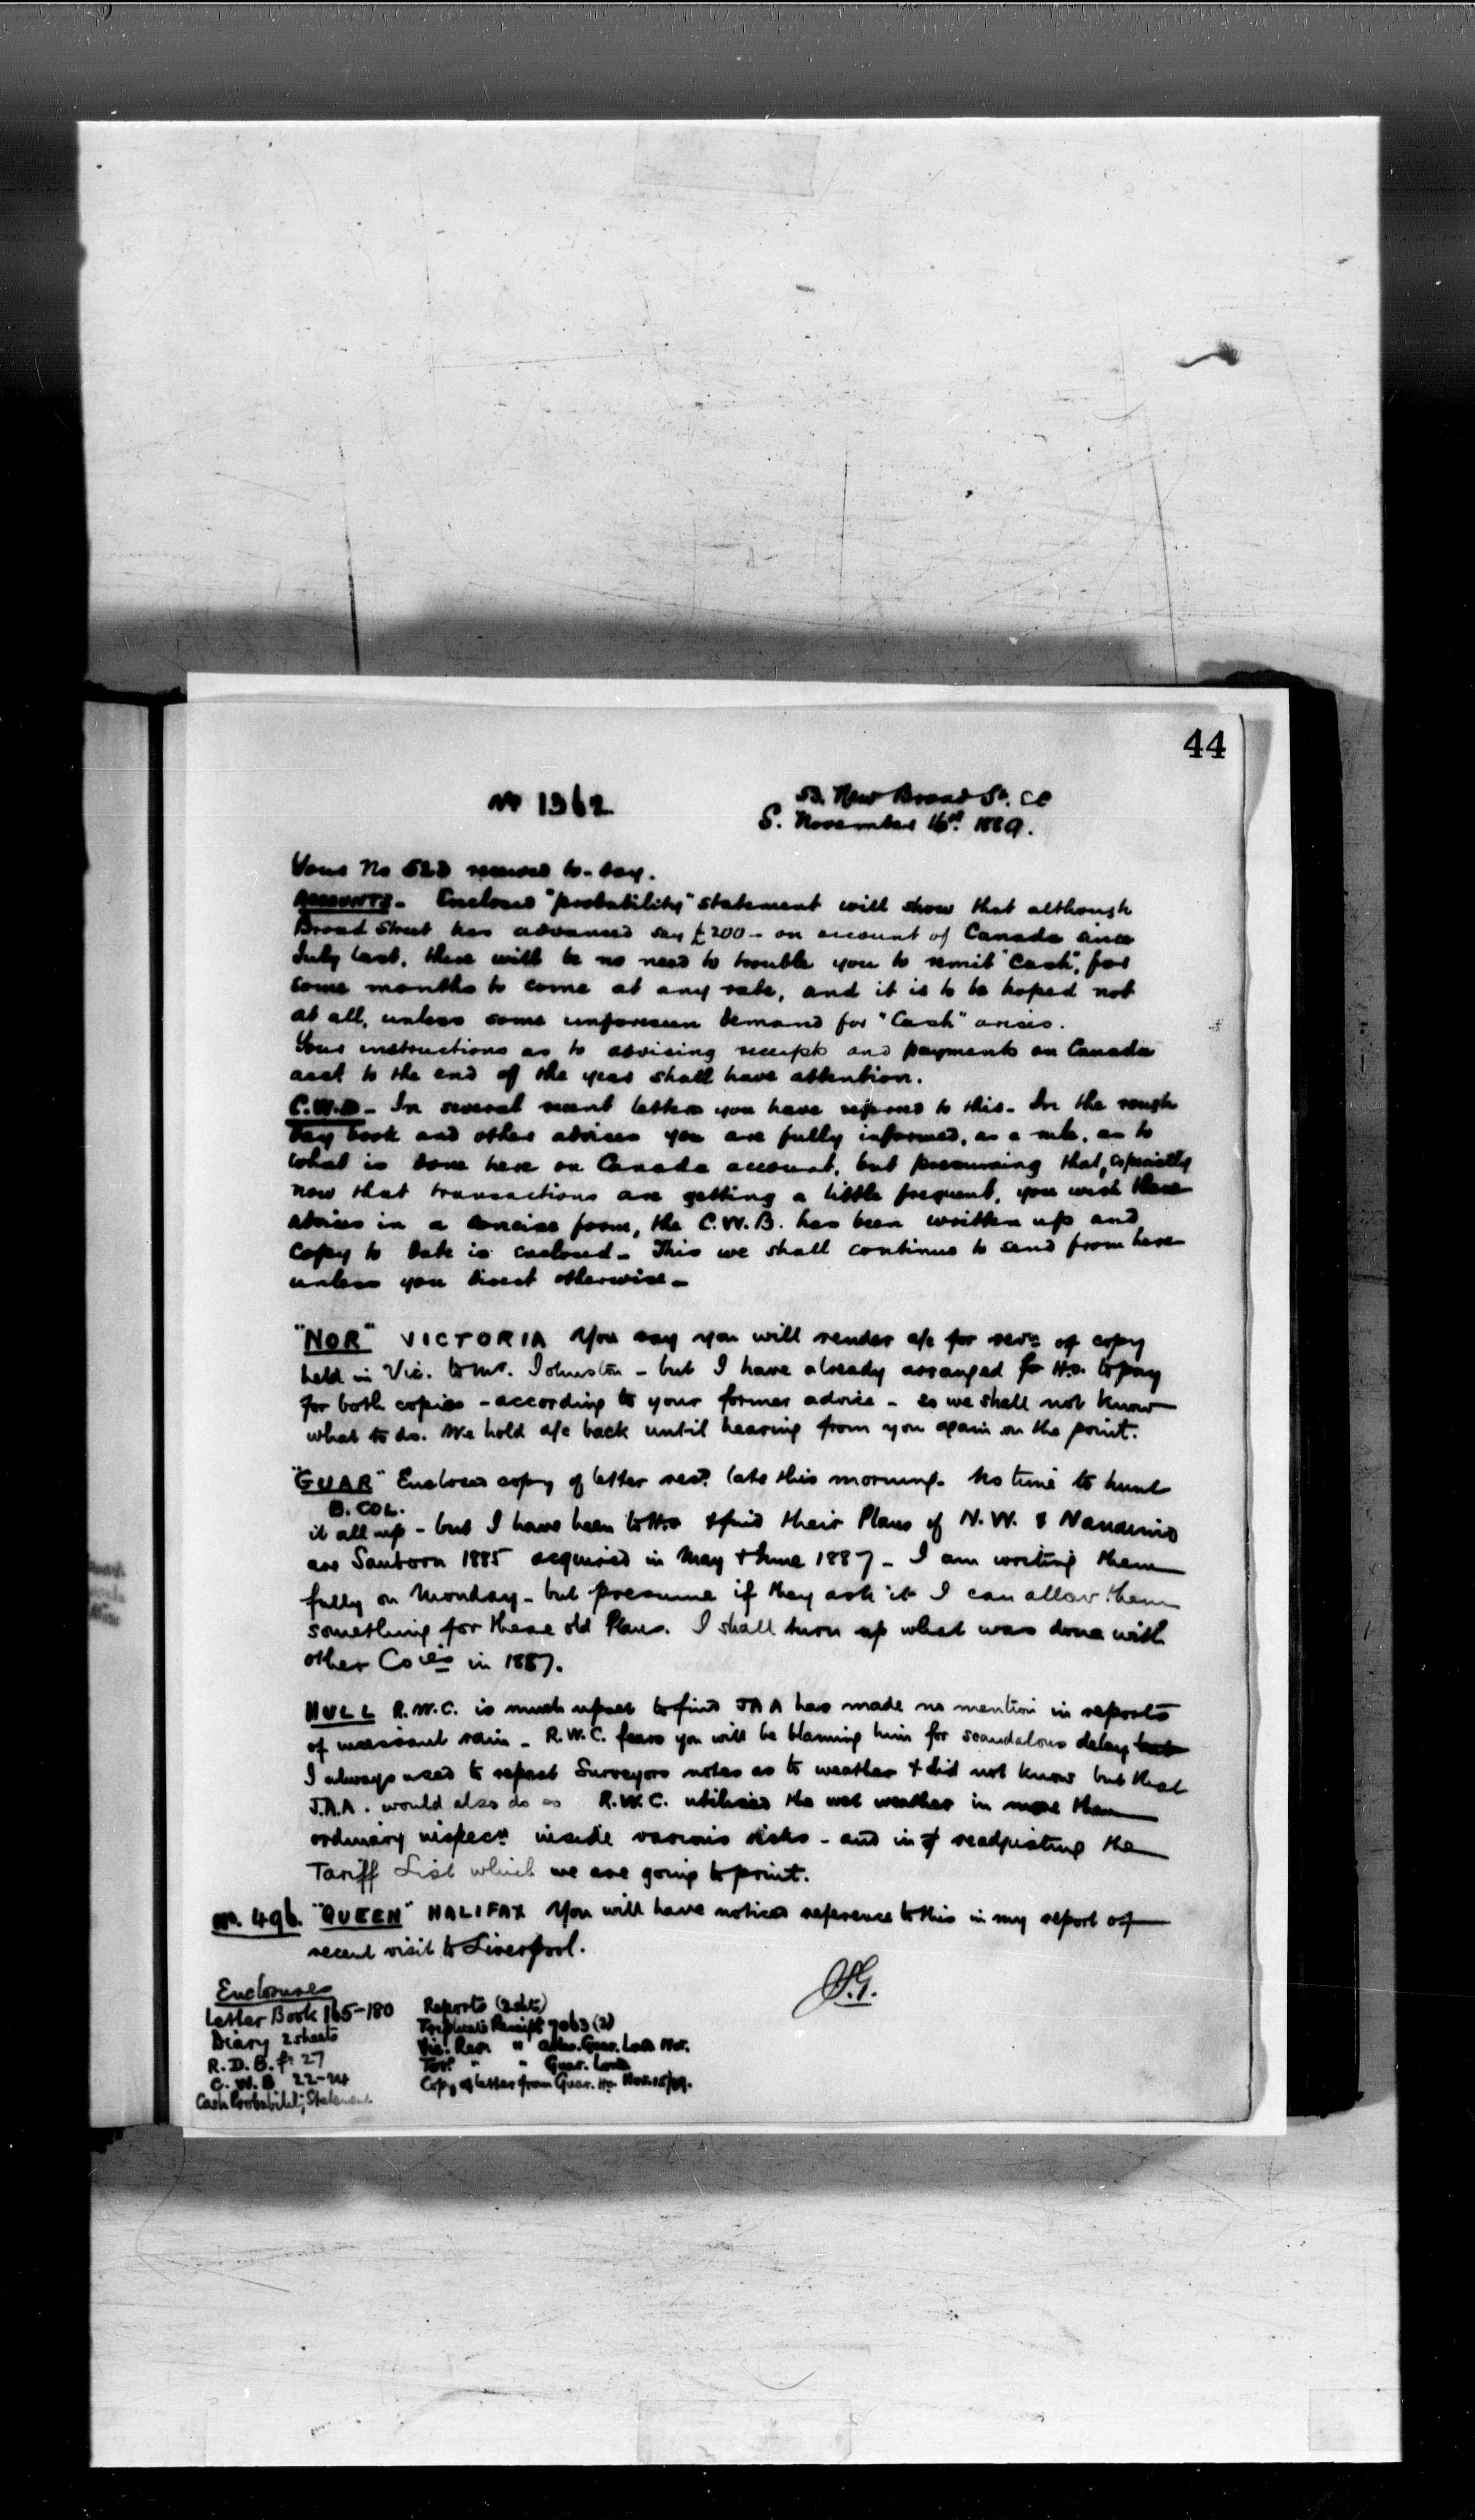 44
No 1362
53. New Broad St. EC
S. November 16th. 1889.
Yours No 523 received to-day.
ACCOUNTS - Enclosed "probability" statement will show that although
Broad Street has advanced say £200 - on account of Canada since
July last, there will be no need to trouble you to remit "Cash", for
some months to come at any rate, and it is to be hoped not
at all, unless some unforeseen demand for "Cash" arises.
Your instructions as to advising receipts and payments on Canada
acct to the end of the year shall have attention.
C.W.B - In several recent letters you have referred to this - In the rough
Day book and other advices you are fully informed, as a rule, as to
what is done here on Canada account, but presuming that, especially
now that transactions are getting a little frequent, you wish these
advices in a concise form, the C.W.B. has been written up and
Copy to date is enclosed - This we shall continue to send from here
unless you direct otherwise -
"NOR" VICTORIA You say you will render a/c for revn of copy
held in Vic. to Mr. Johnston - but I have already arranged for H.O. to pay
for both copies - according to your former advice - so we shall not know
what to do. We hold a/c back until hearing from you again on the point.
"GUAR" Enclosed copy of letter recd. late this morning. No time to hunt
B. COL.
it all up - but I have been to H.O. & find their Plans of N.W. & Nanaimo
are Sanborn 1885 acquired in May & June 1887 - I am writing them
fully on Monday - but presume if they ask it I can allow them
something for these old Plans. I shall turn up what was done with
other Coies in 1887.
HULL R.W.C. is much upset to find JAA has made no mention in reports
of incessant rain - R.W.C. fears you will be blaming him for scandalous delay but
I always used to repeat Surveyors notes as to weather & did not know but that
J.A.A. would also do so R.W.C. utilised the wet weather in more than
ordinary inspecn. inside various risks - and in readjusting the
Tariff List which we are going to print.
m. 496. "QUEEN" HALIFAX You will have noticed reference to this in my report of
recent visit to Liverpool.
Enclosures
Letter Book 165-180
Diary 2 sheets
R.D.B. fo 27
C.W.B. 22-24
Cash Probability Statement
Reports (2 shts)
Triplicate Receipt 7063 (2)
Vic. Rev. " Atlas. Guar. Lond. Nor.
Tor. " " Guar. Lond.
Copy of letter from Guar. Ho. Nov. 15/89.